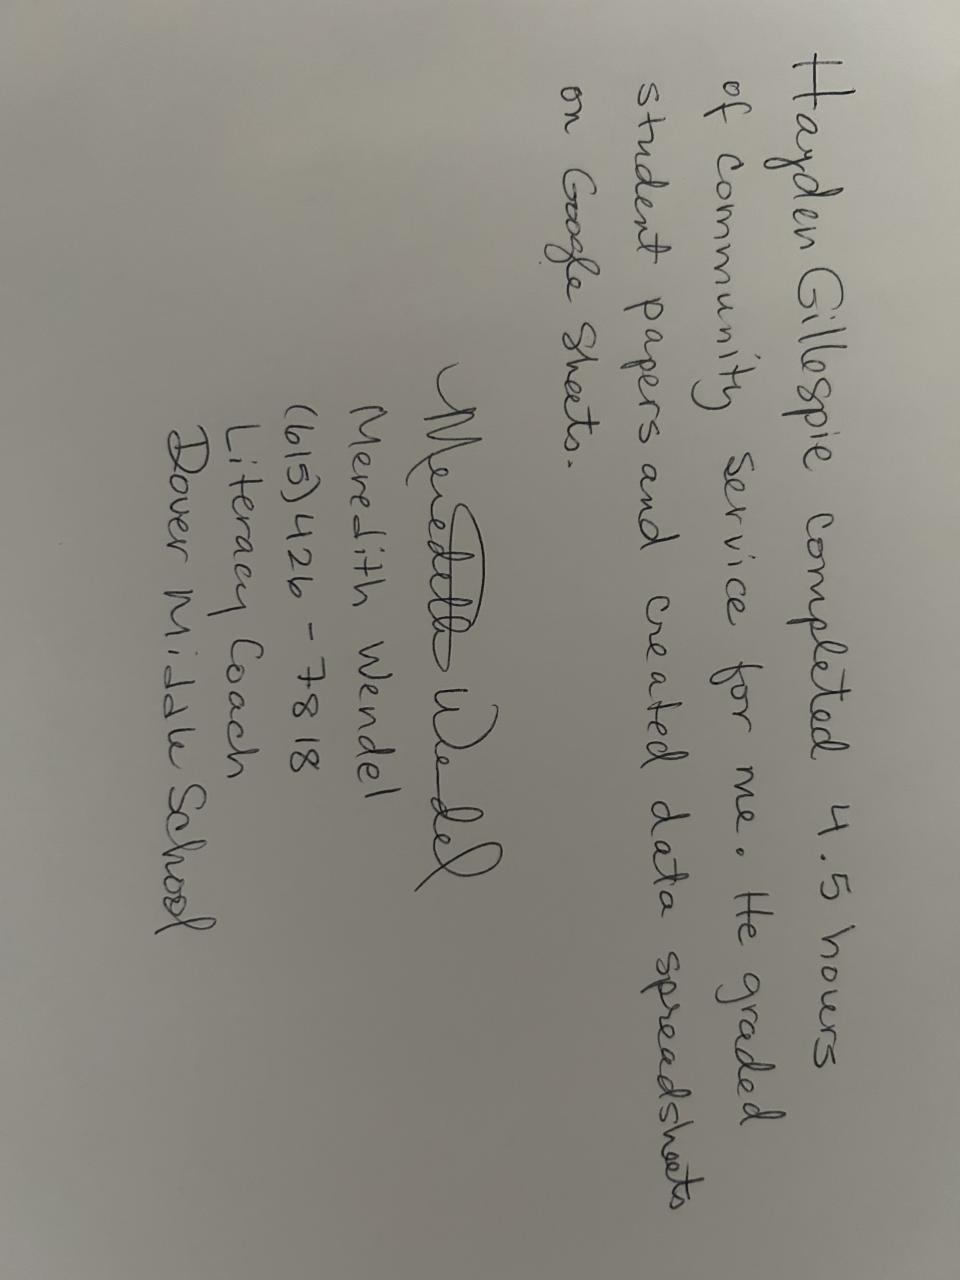 Hayden Gillespie completed 4.5 hours
of community service for me. He graded
student papers and created data spreadsheets
on Google Sheets.
Meredith Wendel
Meredith Wendel
(615) 426-7818
Literacy Coach
Dover Middle School